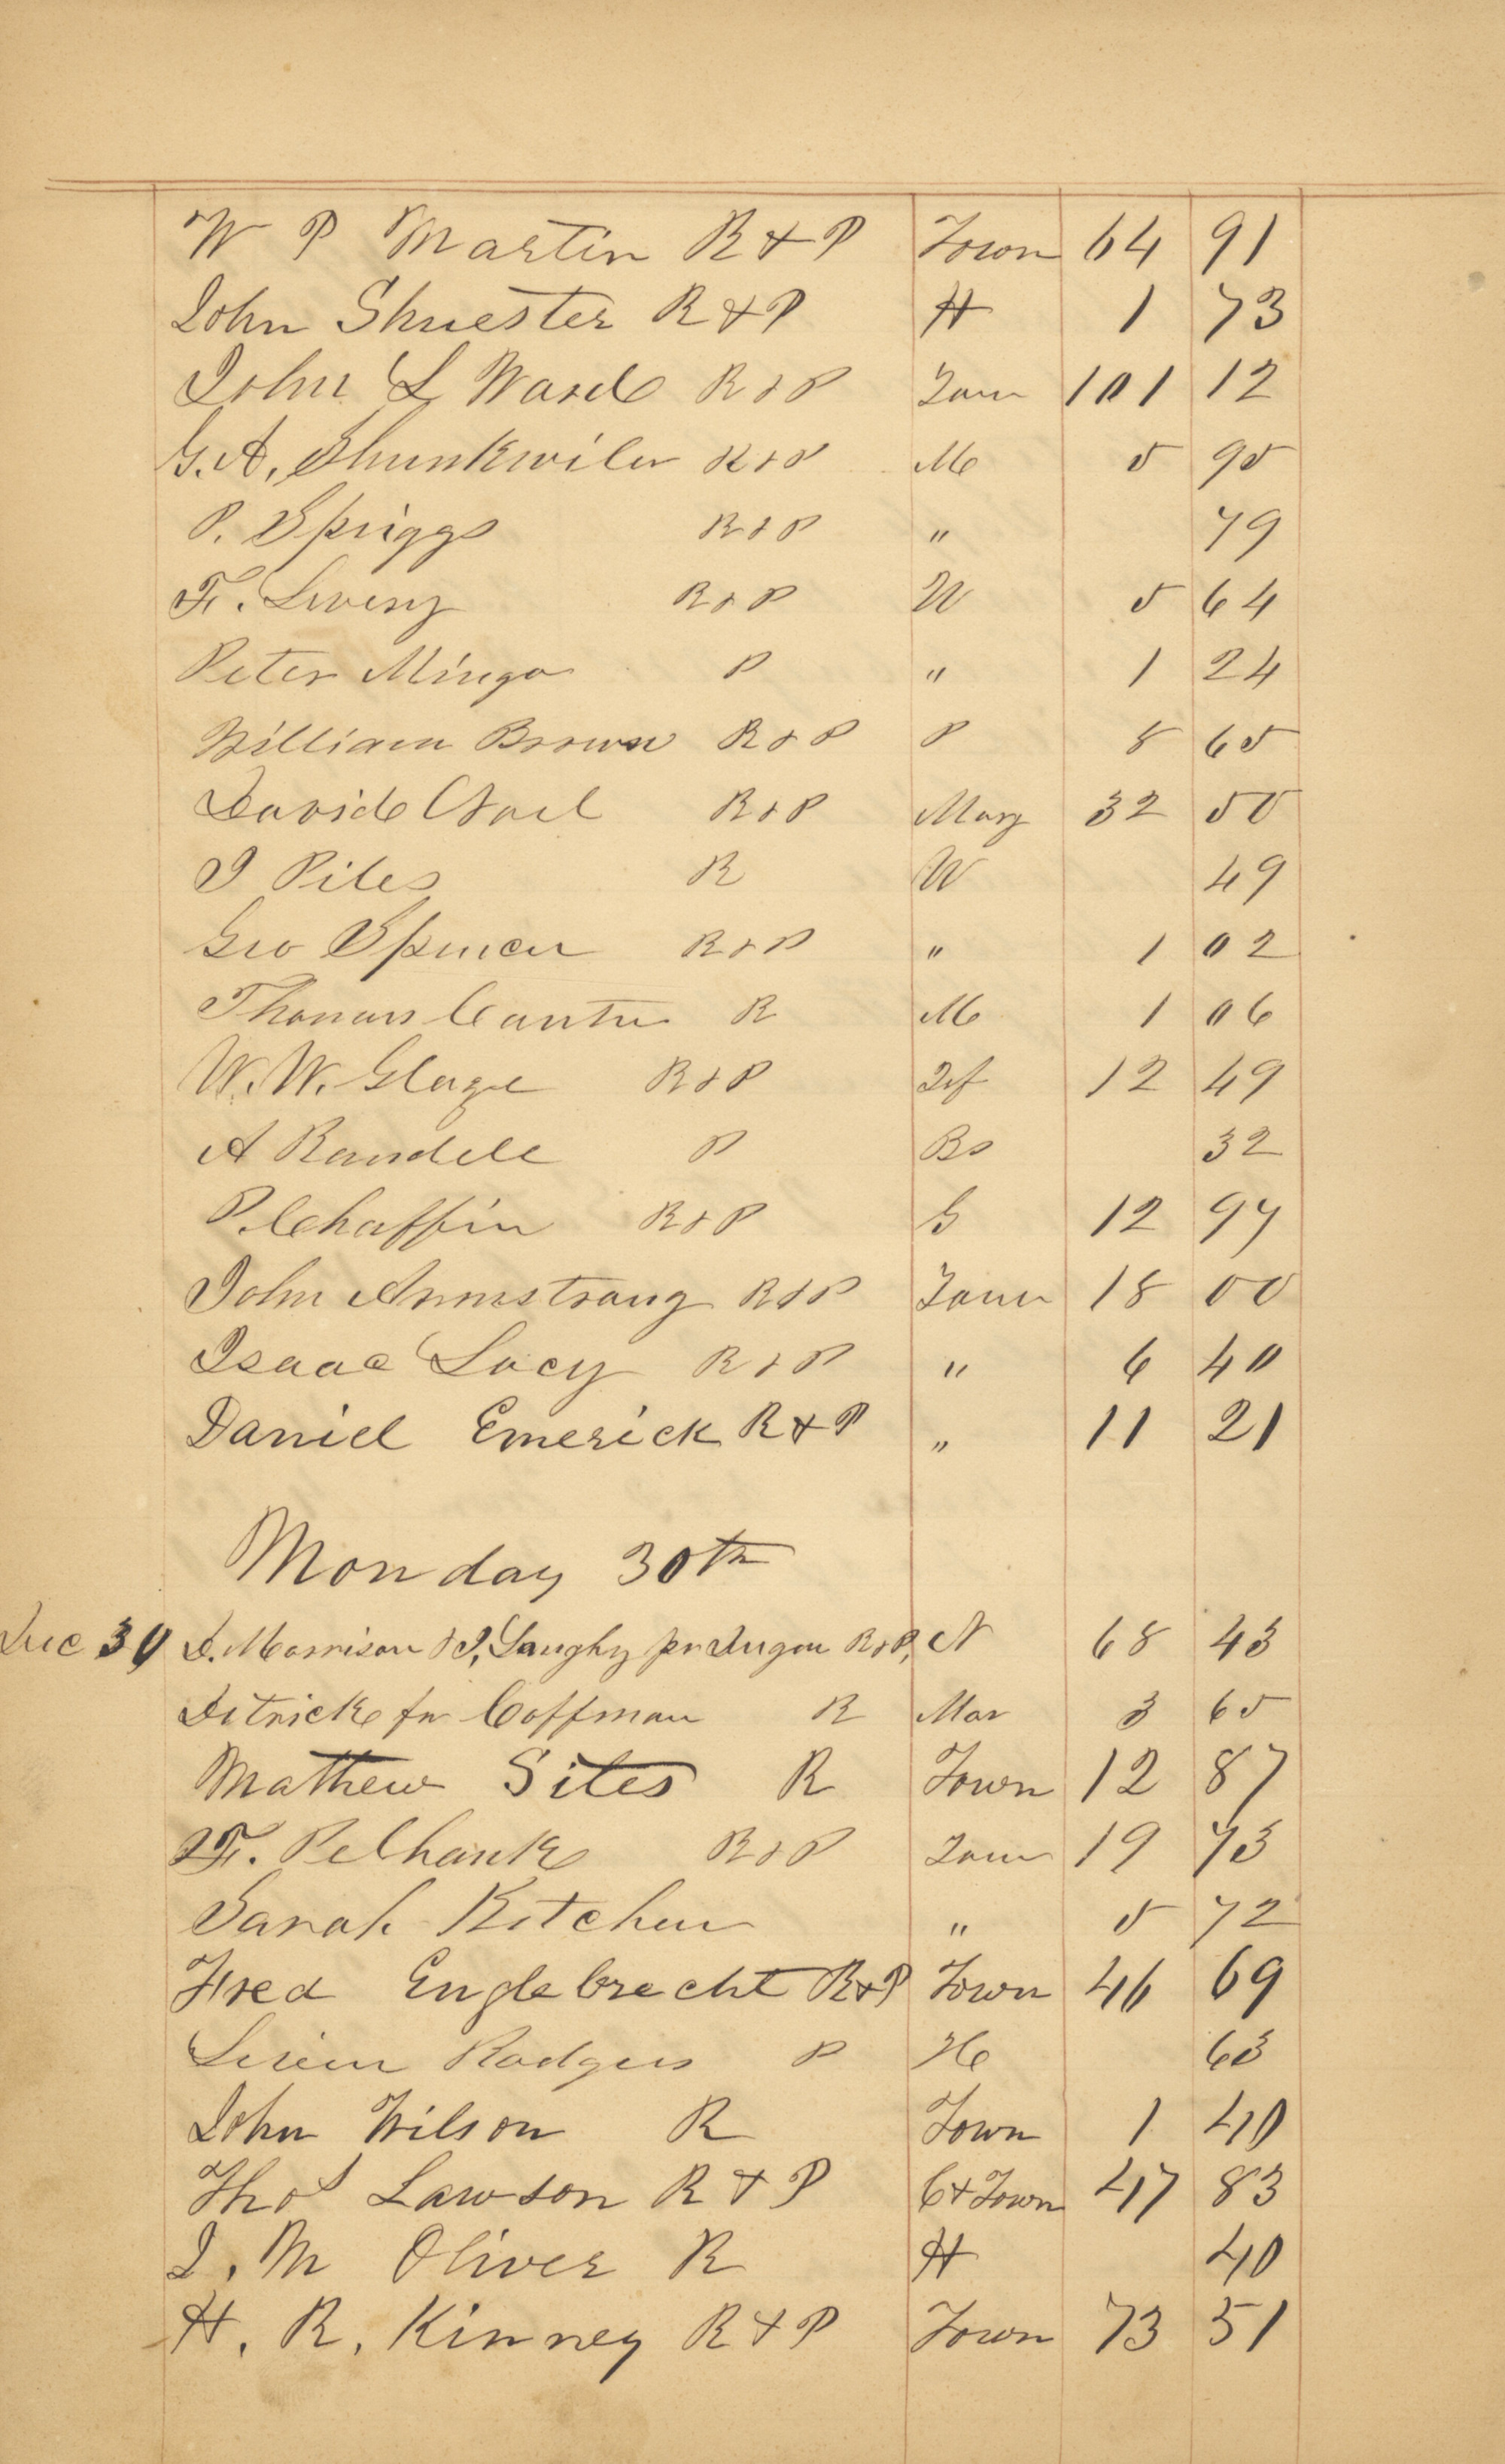 W P Martin R & P Town 64 91
John Shuester R & P H 1 73
John L Ward R & P Town 101 12
G. A. Shunkwiler R & P M 5 95
P. Spriggs R & P " 79
F. Livery R & P W 5 64
Peter Mingo P " 1 24
William Brown R & P P 8 65
David R & P Mary 32 50
J Piles R W 49
Geo Spencer R & P " 1 02
Thomas Canter R M 1 06
W. W. Glaze R & P Jef 12 49
A Randell P Bs 32
P. Chaffin R & P G 12 97
John Armstrong R & P Town 18 00
Isaac Lacy R & P " 6 40
Daniel Emerick R & P " 11 21
Monday 30th
Dec 30 D. Morrison & J. Laughry pr Dugan R & P, N 68 43
Ditrick for Coffman R Mar 3 65
Mathew Sites R Town 12 87
F. Pelhank R & P Town 19 73
Sarah Kitchen " 5 72
Fred Englebrecht R & P Town 46 69
Rodgers P H 63
John Wilson R Town 1 40
Thos Lawson R & P C & Town 47 83
J. M Oliver R H 40
H. R. Kinney R & P Town 73 51